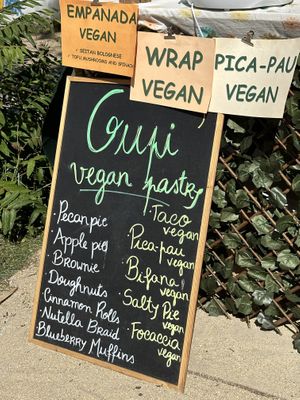 EMPANADA
VEGAN
• SEITAN BOLOGNESE
• TOFU, MUSHROOMS AND SPINACH
WRAP
VEGAN
PICA-PAU
VEGAN
Gupi'
vegan pastry
• Pecan pie
• Apple pie
• Brownie
• Doughnuts
• Cinnamon Rolls
• Nutella Braid
• Blueberry Muffins
• Taco
vegan
• Pica-pau
vegan
• Bifana
vegan
• Salty Pie
vegan
• Focaccia
vegan